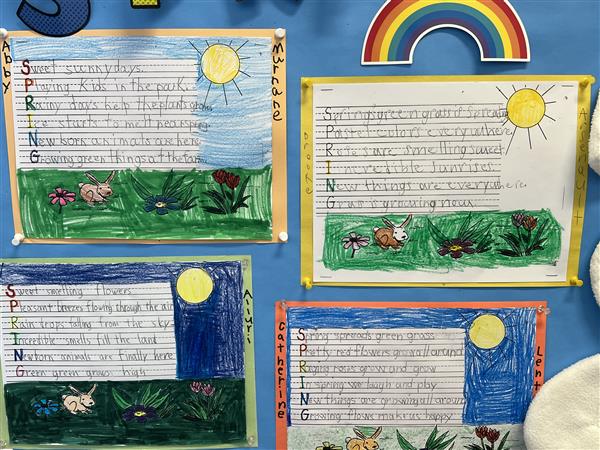 Abby
Murnane
Sweet sunny days.
Playing kids in the park.
Rainy days help the plants grow.
Ice starts to melp near spring.
Newborn animals are here.
Growing green things at the farm.
Brooke
Arsenault
Springs green grass is spreading
Pastel colors everywhere
Roses are smelling sweet
Incredible sunrises
New things are everywhere.
Grass is growing now.
Alluri
Sweet smelling flowers
Pleasant breezes flowing through the air
Rain drops falling from the sky
Incredible smells fill the land
Newborn animals are finally here
Green green grows high
Catherine
Lent
Spring spreads green grass
Pretty red flowers grow all around
Raging roses grow and grow
In spring we laugh and play
New things are growing all around
Growing flows make us happy